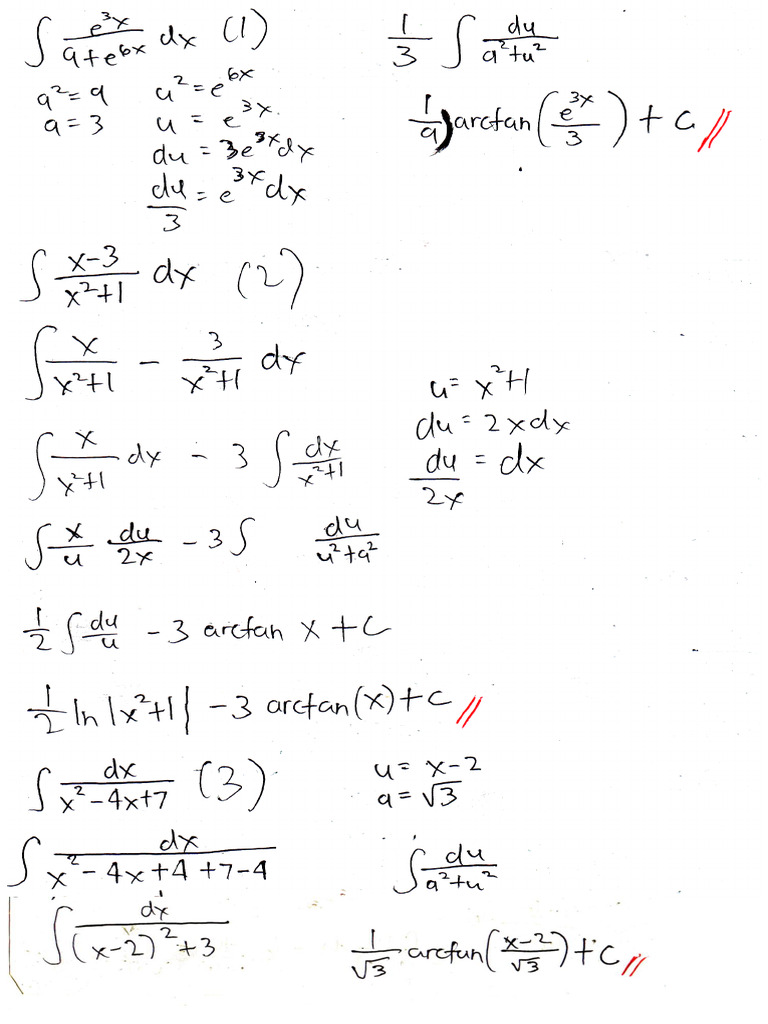 ∫ e^3x / 9+e^6x dx (1)
a² = 9
a = 3
u² = e^6x
u = e^3x
du = 3e^3x dx
du/3 = e^3x dx
1/3 ∫ du / a²+u²
1/9 arctan(e^3x / 3) + C //
∫ x-3 / x²+1 dx (2)
∫ x / x²+1 - 3 / x²+1 dx
∫ x / x²+1 dx - 3 ∫ dx / x²+1
u = x²+1
du = 2x dx
du / 2x = dx
∫ x/u du/2x - 3 ∫ du / u²+a²
1/2 ∫ du/u - 3 arctan x + C
1/2 ln |x²+1| - 3 arctan(x) + C //
∫ dx / x²-4x+7 (3)
∫ dx / x²-4x+4+7-4
∫ dx / (x-2)²+3
u = x-2
a = √3
∫ du / a²+u²
1/√3 arctan(x-2 / √3) + C //